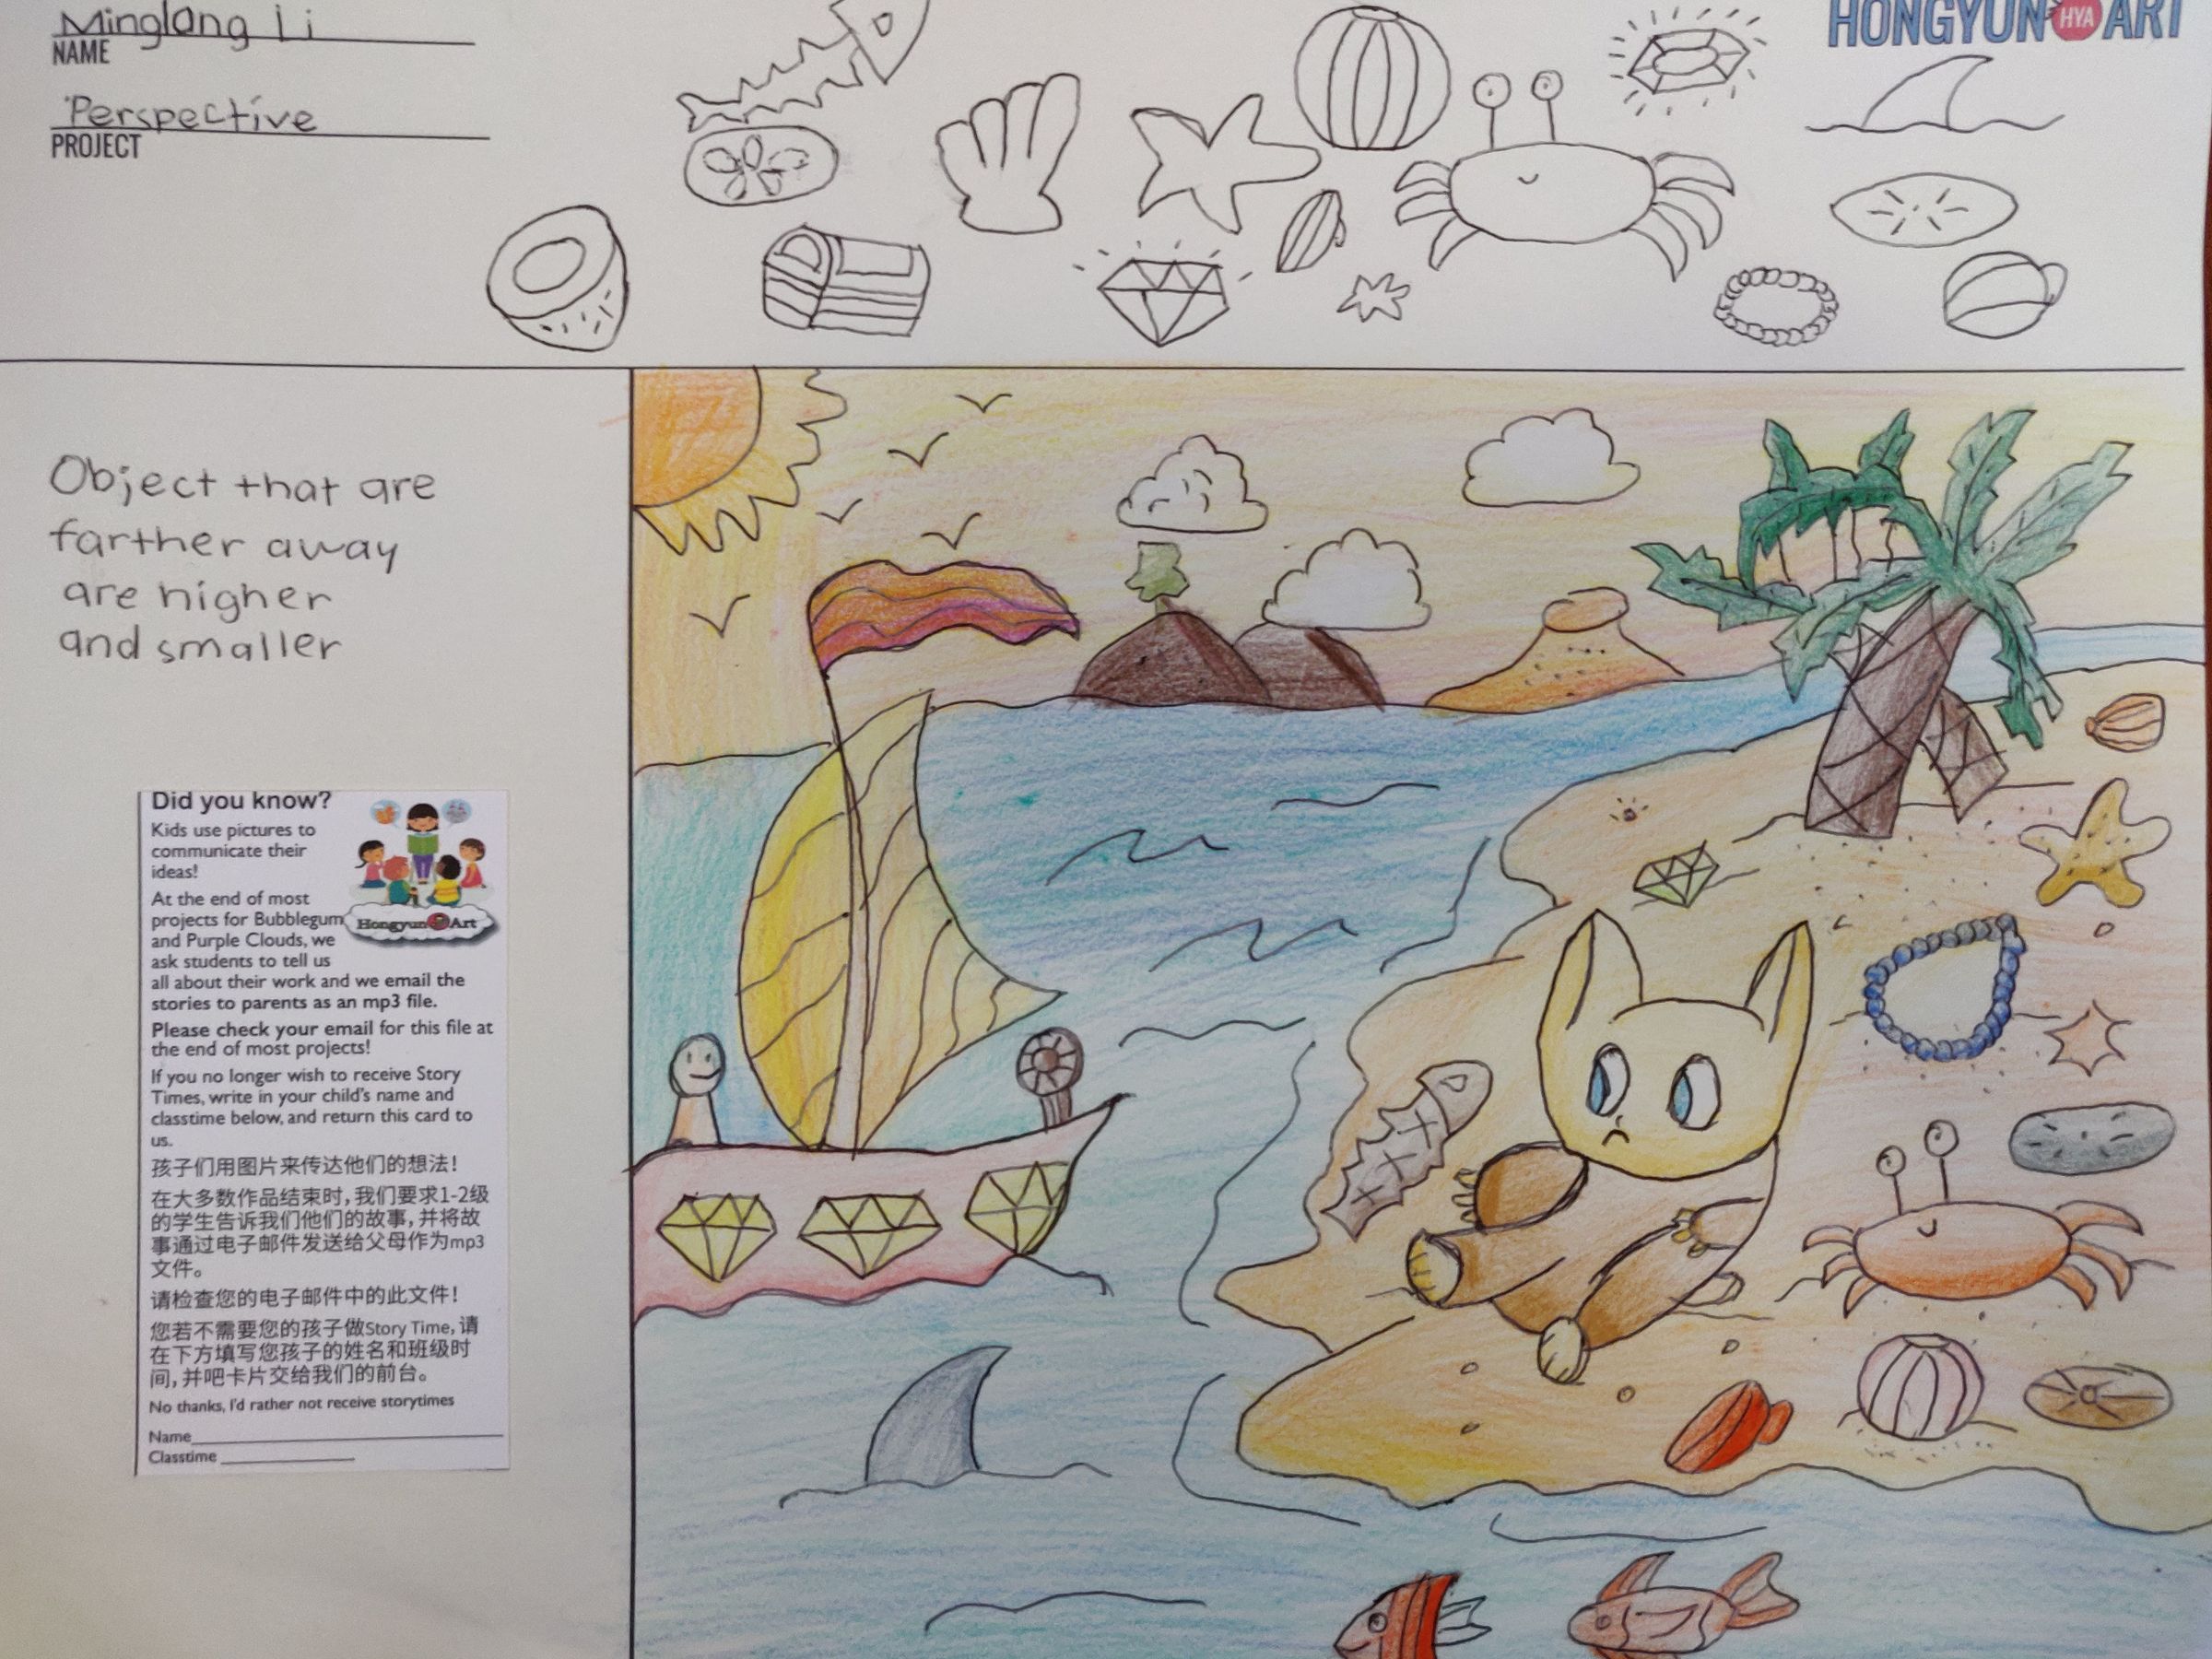 Minglang Li
NAME
Perspective
PROJECT
HONGYUN HYA ART
Object that are
farther away
are higher
and smaller
Did you know?
Kids use pictures to
communicate their
ideas!
At the end of most
projects for Bubblegum
and Purple Clouds, we
ask students to tell us
all about their work and we email the
stories to parents as an mp3 file.
Hongyun Art
Please check your email for this file at
the end of most projects!
If you no longer wish to receive Story
Times, write in your child's name and
classtime below, and return this card to
us.
孩子们用图片来传达他们的想法!
在大多数作品结束时,我们要求1-2级
的学生告诉我们他们的故事,并将故
事通过电子邮件发送给父母作为mp3
文件。
请检查您的电子邮件中的此文件!
您若不需要您的孩子做Story Time,请
在下方填写您孩子的姓名和班级时
间,并吧卡片交给我们的前台。
No thanks, I'd rather not receive storytimes
Name
Classtime